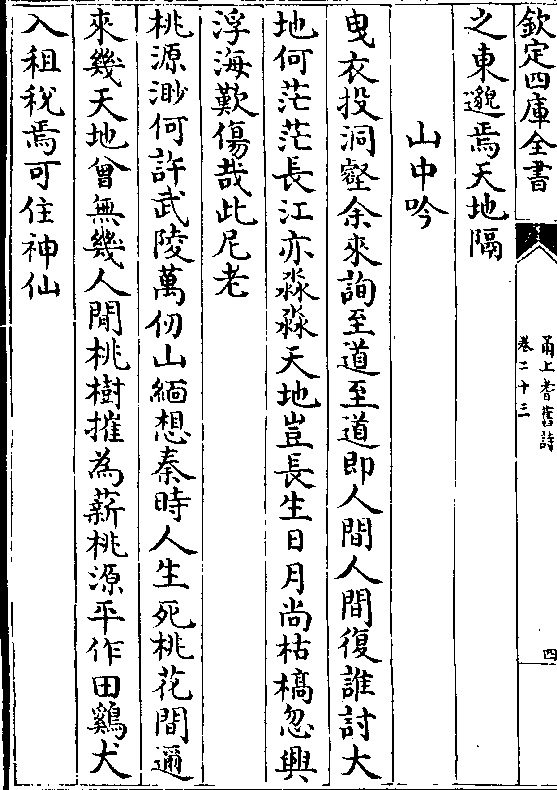 欽定四庫全書
甬上耆舊詩
卷二十三
四
之東邈焉天地隔
山中吟
曳衣投洞壑余來詢至道至道即人間人間復誰討大
地何茫茫長江亦淼淼天地豈長生日月尚枯槁忽興
浮海歎傷哉此尼老
桃源渺何許武陵萬仞山緬想秦時人生死桃花間邇
來幾天地曾無幾人間桃樹摧為薪桃源平作田鷄犬
入租稅焉可住神仙